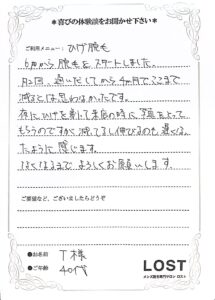 ＊喜びの体験談をお聞かせ下さい＊
ご利用メニュー： ひげ脱毛
6月から脱毛をスタートしました。
月2回、通いだしてから4ヵ月でここまで
減るとは思わなかったです。
夜にひげを剃って来店の時に、写真をとって
もらうのですが減ってるし伸びるのも遅くなっ
たように感じます。
なくなるまでよろしくお願いします。
ご要望など、ございましたらどうぞ
●お名前 T 様
●ご年齢 40代
LOST
メンズ脱毛専門サロン ロスト